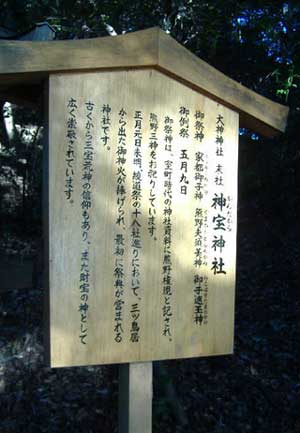 大神神社 末社 神宝神社
御祭神 家都御子神 熊野夫須美神 御子速玉神
御例祭 五月九日
御祭神は、室町時代の神社資料に熊野権現と記され、
熊野三神をお祀りしています。
正月元日未明、繞道祭の十八社巡りにおいて、三ツ鳥居
から出た御神火が捧げられ、最初に祭典が営まれる
神社です。
古くから三宝荒神の信仰もあり、また財宝の神として
広く崇敬されています。